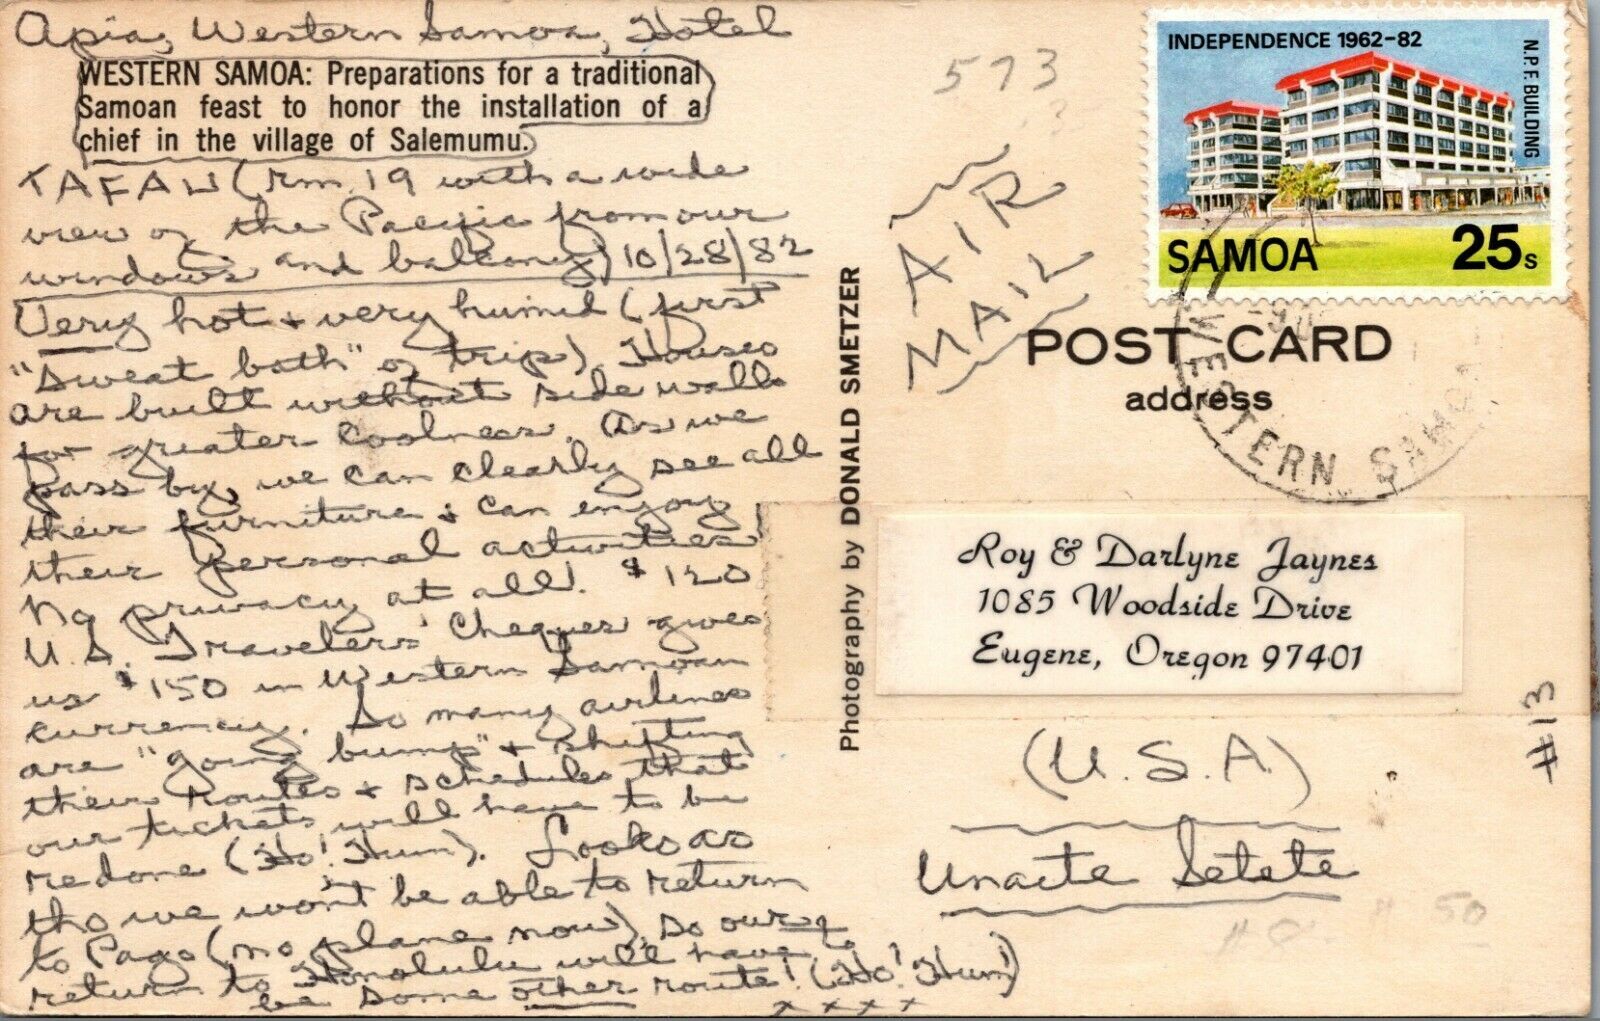 Apia, Western Samoa, Hotel
WESTERN SAMOA: Preparations for a traditional
Samoan feast to honor the installation of a
chief in the village of Salemumu.
TAFAU (rm. 19 with a wide
view of the Pacific from our
windows and balcony) 10/28/82
Very hot & very humid (first
"sweat bath" of trip) Houses
are built without side walls
for greater coolness. As we
pass by, we can clearly see all
their furniture & can enjoy
their personal activities
No privacy at all! $120
U.S. Travelers' Cheques gives
us $150 in Western Samoan
currency. So many airlines
are "going bump" & shifting
their routes & schedules that
our tickets will have to be
redone (Ho! Hum). Looks as
tho we won't be able to return
to Pago (no plane now), so our
return to Honolulu will have to
be some other route! (Ho! Hum!)
x x x x
Photography by DONALD SMETZER
573
AIR
MAIL
INDEPENDENCE 1962-82
N.P.F. BUILDING
SAMOA 25s
POST CARD
address
WESTERN SAMOA
Roy & Darlyne Jaynes
1085 Woodside Drive
Eugene, Oregon 97401
(U.S.A.)
Unaite Setete
#13
50